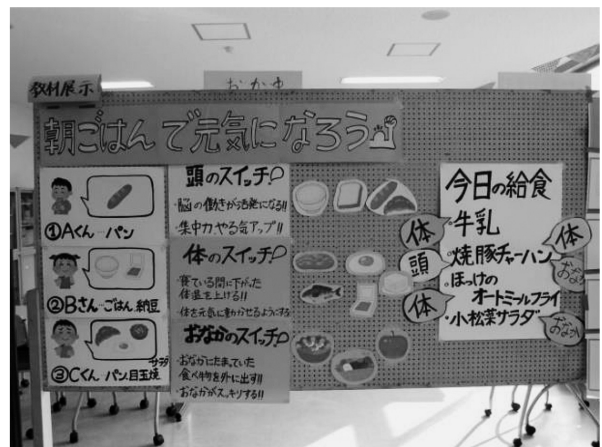 教材展示
おかゆ
朝ごはんで元気になろう
①Aくん パン
②Bさん ごはん 納豆
③Cくん パン 目玉焼
サラダ
頭のスイッチ
・脳の働きが活発になる!!
・集中力、やる気アップ!!
体のスイッチ
・寝ている間に下がった
体温を上げる!!
・体を元気に動かせるようにする
おなかのスイッチ
・おなかにたまっていた
食べ物を外に出す!!
・おなかがスッキリする!!
今日の給食
体
・牛乳
体
頭
・焼豚チャーハン
おなか
・ほっけの
体
オートミールフライ
・小松菜サラダ
おなか